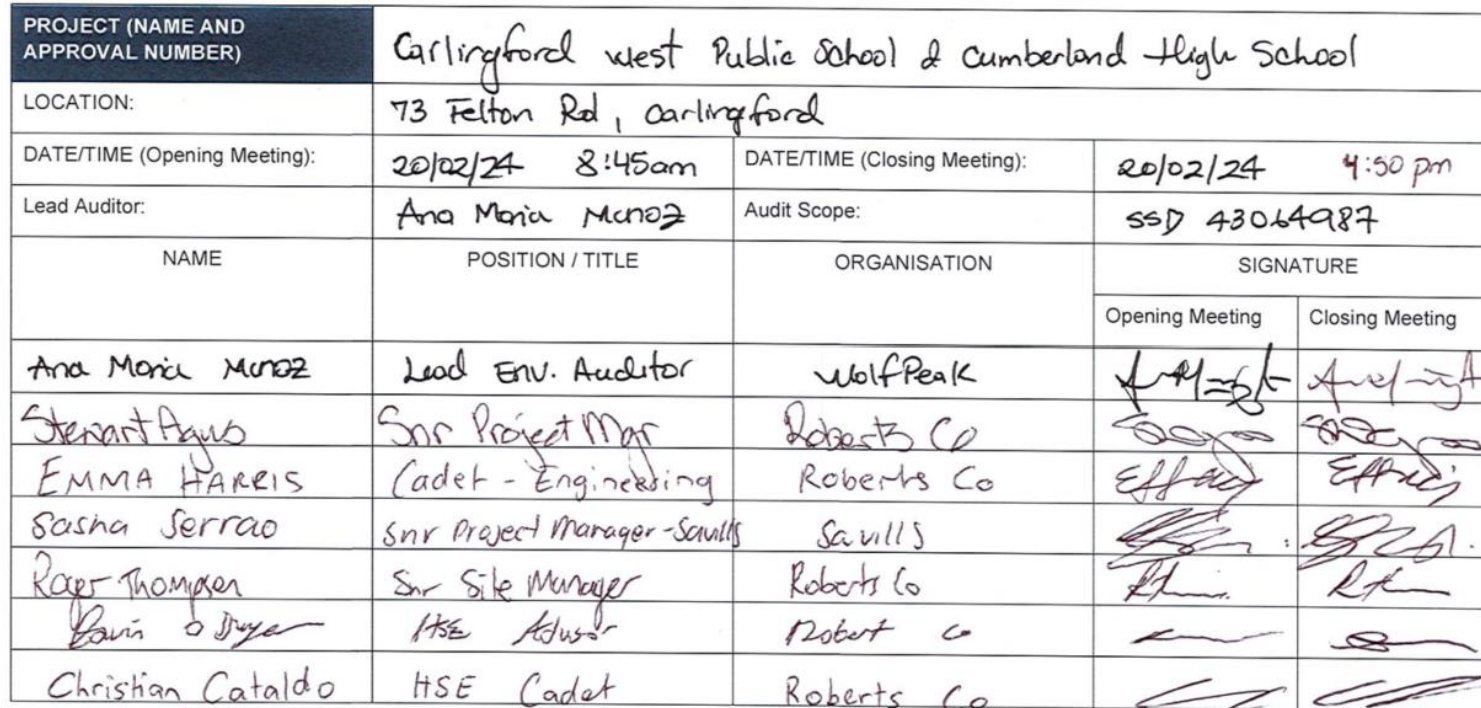 PROJECT (NAME AND
APPROVAL NUMBER)
Carlingford west Public School & Cumberland High School
LOCATION:
73 Felton Rd, Carlingford
DATE/TIME (Opening Meeting):
20/02/24 8:45am
DATE/TIME (Closing Meeting):
20/02/24 4:50 pm
Lead Auditor:
Ana Maria Munoz
Audit Scope:
SSD 43064987
NAME
POSITION / TITLE
ORGANISATION
SIGNATURE
Opening Meeting
Closing Meeting
Ana Maria Munoz Lead Env. Auditor WolfPeak
Stewart Snr Project Mgr Roberts Co
EMMA HARRIS Cadet - Engineering Roberts Co
Sasha Serrao Snr Project Manager-Savills Savills
Roger Thompson Snr Site Manager Roberts Co
O Dwyer HSE Advisor Robert Co
Christian Cataldo HSE Cadet Roberts Co